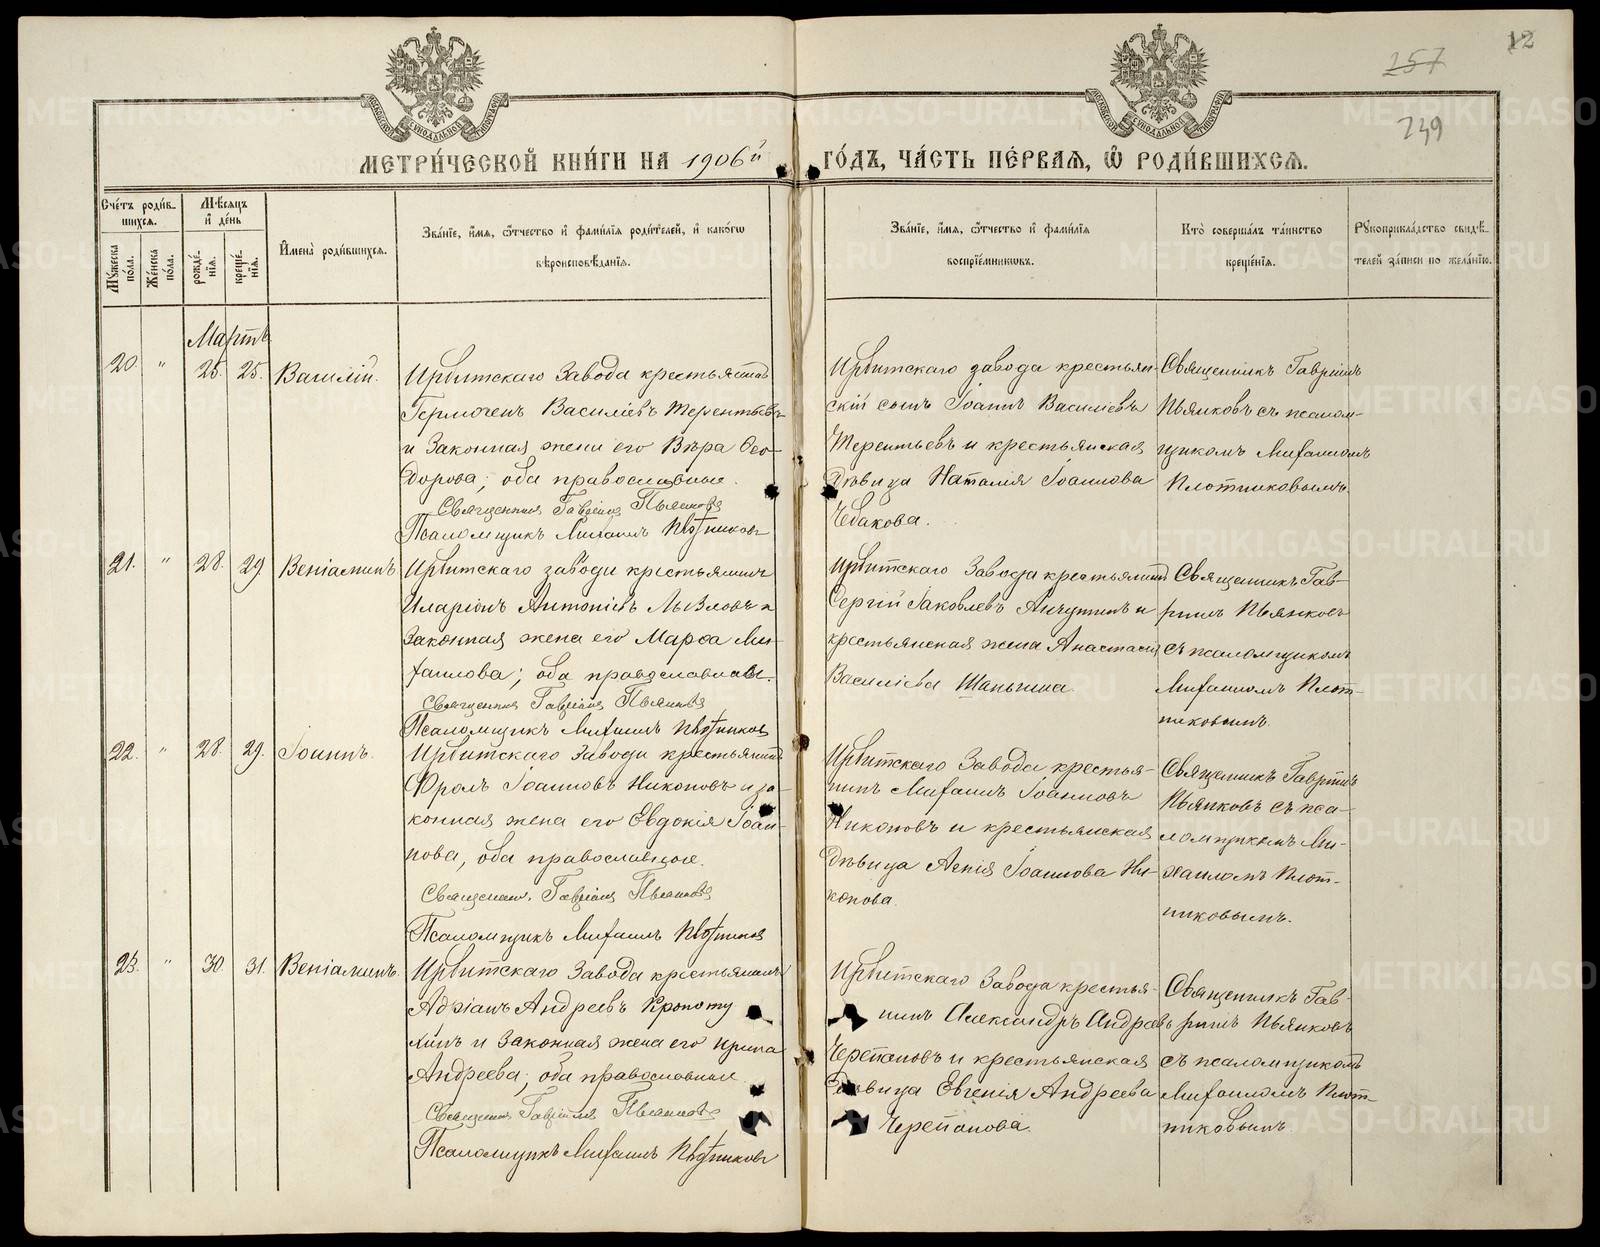 12
257
239
МЕТРИ́ЧЕСКОЙ КНИ́ГИ НА 1906й ГО́ДЪ, ЧА́СТЬ ПЕ́РВАЯ, Ѡ҆ РОДИ́ВШИХСЯ.
Сче́тъ роди́в-
шихся.
Мѣ́сяцъ
и҆ де́нь
Мꙋ́жеска по́ла.
Же́нска по́ла.
рожде́-
нїѧ.
креще́-
нїѧ.
И҆мена̀ роди́вшихся.
Зва́нїе, и҆́мѧ, ѻ҆́тчество и҆ фами́лїѧ роди́телей, и҆ како́гѡ
вѣроисповѣ́данїѧ.
Зва́нїе, и҆́мѧ, ѻ҆́тчество и҆ фами́лїѧ
воспрїе́мникѡвъ.
Кто̀ соверша́лъ та́инство
креще́нїѧ.
Рꙋкоприкла́дство свидѣ́-
телей за́писи по жела́нїю.
Мартъ
20. " 25. 25. Василій.
Ирбитскаго Завода крестьянинъ
Гермогенъ Василіевъ Терентьевъ
и Законная жена его Вѣра Ѳео-
дорова; оба православные.
Священникъ Гавріилъ Пьянковъ
Псаломщикъ Михаилъ Плотниковъ
Ирбитскаго завода крестьян-
скій сынъ Іоаннъ Василіевъ
Терентьевъ и крестьянская
дѣвица Наталія Іоаннова
Чебакова.
Священникъ Гавріилъ
Пьянковъ съ псалом-
щикомъ Михаиломъ
Плотниковымъ.
21. " 28. 29. Веніаминъ
Ирбитскаго завода крестьянинъ
Иларіонъ Антоніевъ Львловъ и
Законная жена его Марѳа Ми-
хаилова; оба православные.
Священникъ Гавріилъ Пьянковъ
Псаломщикъ Михаилъ Плотниковъ
Ирбитскаго Завода крестьянинъ
Сергій Іаковлевъ Анчутинъ и
крестьянская жена Анастасія
Василіева Шаньгина.
Священникъ Гав-
ріилъ Пьянковъ
съ псаломщикомъ
Михаиломъ Плот-
никовымъ.
22. " 28. 29. Іоаннъ.
Ирбитскаго Завода крестьянинъ
Фролъ Іоанновъ Никоновъ и за-
конная жена его Евдокія Іоан-
нова, оба православные.
Священникъ Гавріилъ Пьянковъ
Псаломщикъ Михаилъ Плотниковъ
Ирбитскаго Завода крестья-
нинъ Михаилъ Іоанновъ
Никоновъ и крестьянская
дѣвица Агнія Іоаннова Ни-
конова.
Священникъ Гавріилъ
Пьянковъ съ пса-
ломщикомъ Ми-
хаиломъ Плот-
никовымъ.
23. " 30. 31. Веніаминъ.
Ирбитскаго Завода крестьянинъ
Адріанъ Андреевъ Кропоту
линъ и Законная жена его Ирина
Андреева; оба православные
Священникъ Гавріилъ Пьянковъ
Псаломщикъ Михаилъ Плотниковъ
Ирбитскаго Завода крестья-
нинъ Александръ Андреевъ
Черепановъ и крестьянская
дѣвица Евгенія Андреева
Черепанова.
Священникъ Гав-
ріилъ Пьянковъ
съ псаломщикомъ
Михаиломъ Плот-
никовымъ.